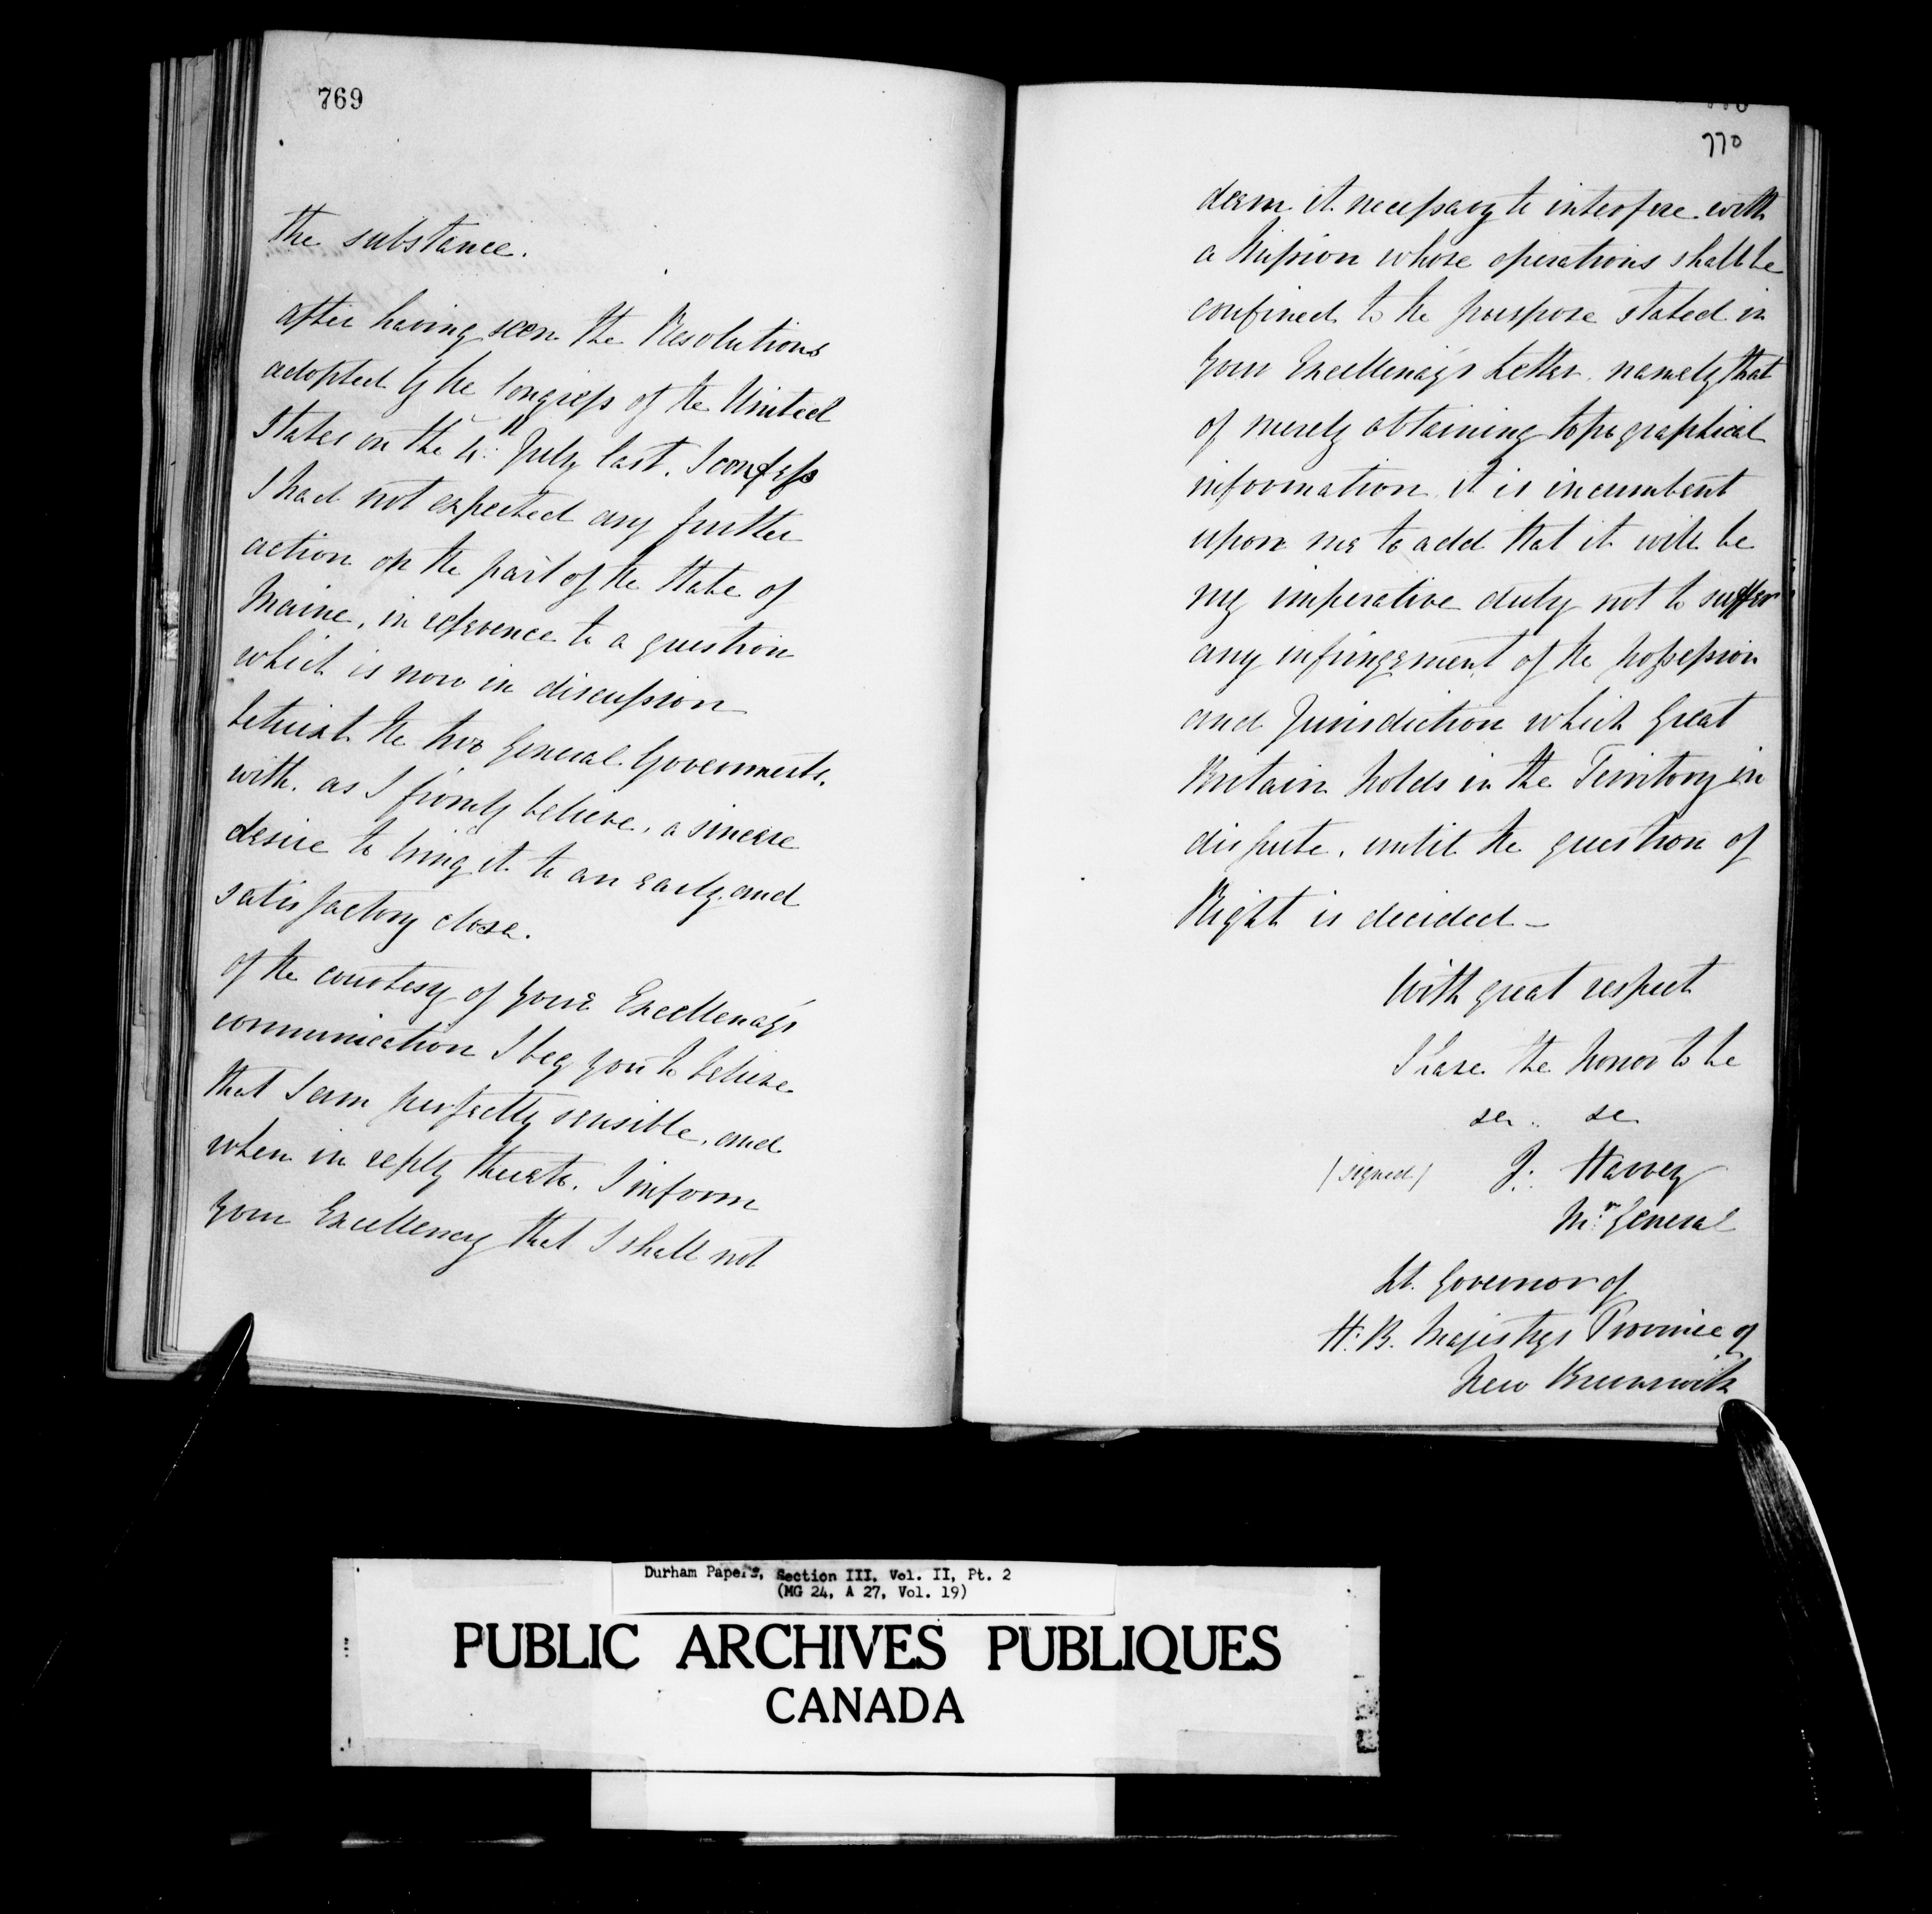 769
the substance.
after having seen the Resolutions
adopted by the Congress of the United
States on the 4th July last, I confess
I had not expected any further
action on the part of the State of
Maine, in reference to a question
which is now in discussion
betwixt the two General Governments,
with, as I firmly believe, a sincere
desire to bring it to an early and
satisfactory close.
Of the courtesy of your Excellency's
communication I beg you to believe
that I am perfectly sensible, and
when in reply thereto, I inform
your Excellency that I shall not
770
deem it necessary to interfere with
a Mission whose operations shall be
confined to the purpose stated in
your Excellency's Letter, namely that
of merely obtaining topographical
information, it is incumbent
upon me to add that it will be
my imperative duty not to suffer
any infringement of the possession
and Jurisdiction which Great
Britain holds in the Territory in
dispute, until the question of
Right is decided –
With great respect
I have the honor to be
&c. &c
(signed) J. Harvey
M.r General
Lt. Governor of
H. B. Majestys Province of
New Brunswick
Durham Papers, Section III, Vol. II, Pt. 2
(MG 24, A 27, Vol. 19)
PUBLIC ARCHIVES PUBLIQUES
CANADA